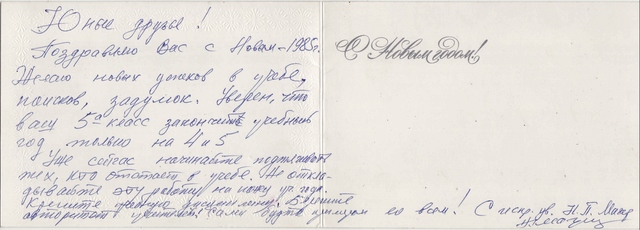 Юные друзья!
Поздравляю Вас с Новым-1985г.
Желаю новых успехов в учебе,
поисков, задумок. Уверен, что
ваш 5а класс закончит учебный
год только на 4 и 5
Уже сейчас начинайте подтягивать
тех, кто отстает в учебе. Не откла-
дывайте эту работу на конец уч. года.
Крепите учебную дисциплину. Берегите
авторитет учителя. Сами будьте примером во всем! С искр. ув. Н. П.
С Новым годом!